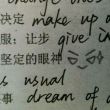 change one's
决定 make up
服；让步 give in
坚定的眼神
as usual
事 dream of